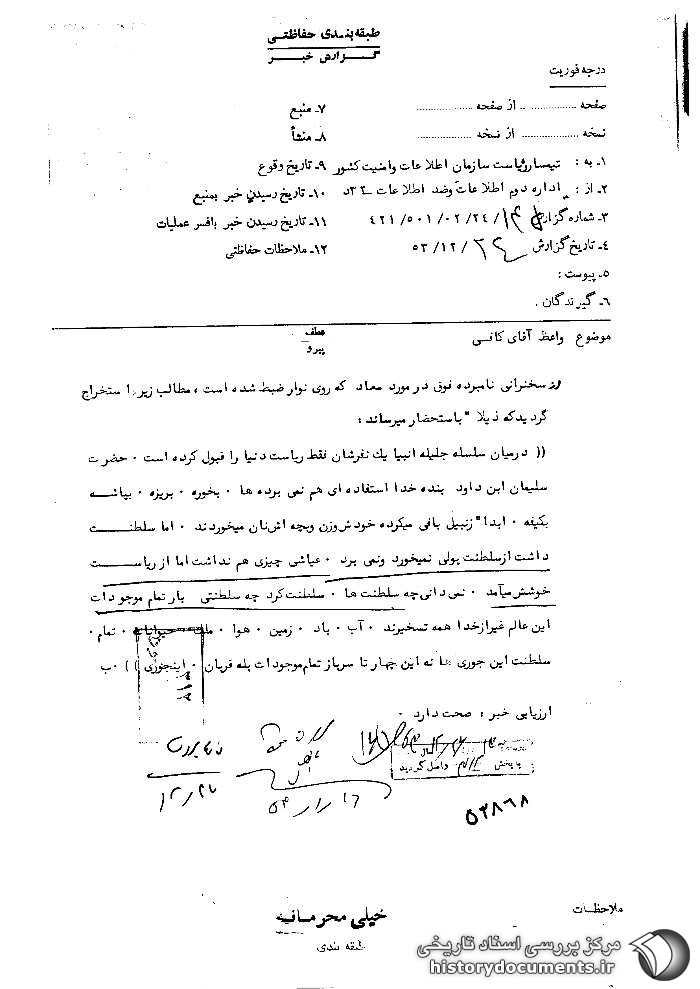 طبقه بندی حفاظتی
گزارش خبر
درجه فوریت
صفحه ............ از صفحه ............
نسخه ............ از نسخه ............
۱ـ به : تیمسار ریاست سازمان اطلاعات وامنیت کشور
۲ـ از : اداره دوم اطلاعات وضد اطلاعات ـ ۳۲د
۳ـ شماره گزارش ۴۲۱/۵۰۱/۰۲/۲۴/
۴ـ تاریخ گزارش ۵۳/۱۲/
۵ـ پیوست :
۶ـ گیرندگان .
۷ـ منبع
۸ـ منشأ
۹ـ تاریخ وقوع
۱۰ـ تاریخ رسیدن خبر بمنبع
۱۱ـ تاریخ رسیدن خبر بافسر عملیات
۱۲ـ ملاحظات حفاظتی
موضوع واعظ آقای کافی
عطف
پیرو
از سخنرانی نامبرده فوق در مورد معاد که روی نوار ضبط شده است ، مطالب زیر استخراج
گردید که ذیلا" باستحضار میرساند :
(( درمیان سلسله جلیله انبیا یك نفرشان فقط ریاست دنیا را قبول کرده است ۰ حضرت
سلیمان ابن داود بنده خدا استفاده ای هم نمی برده ها ۰ بخوره ۰ بریزه ۰ بپاشه
بکیفه ۰ ابدا" زنبیل بافی میکرده خودش وزن وبچه اش نان میخوردند ۰ اما سلطنت
داشت از سلطنت پولی نمیخورد ونمی برد ۰ عیاشی چیزی هم نداشت اما از ریاست
خوشش میآمد ۰ نمی دانی چه سلطنت ها ۰ سلطنت کرد چه سلطنتی بار تمام موجودات
این عالم غیر از خدا همه تسخیرند ۰ آب ۰ باد ۰ زمین ۰ هوا ۰ حیوانات ۰ تمام ۰
سلطنت این جوری ها نه این چهار تا سرباز تمام موجودات بله قربان ۰ اینجوری )) ۰ ب
ارزیابی خبر : صحت دارد ۰
به بخش واصل گردید
۱۲/۲۷
۵۳۸۶۸
ملاحظات
خیلی محرمانه
طبقه بندی
مرکز بررسی اسناد تاریخی
historydocuments.ir